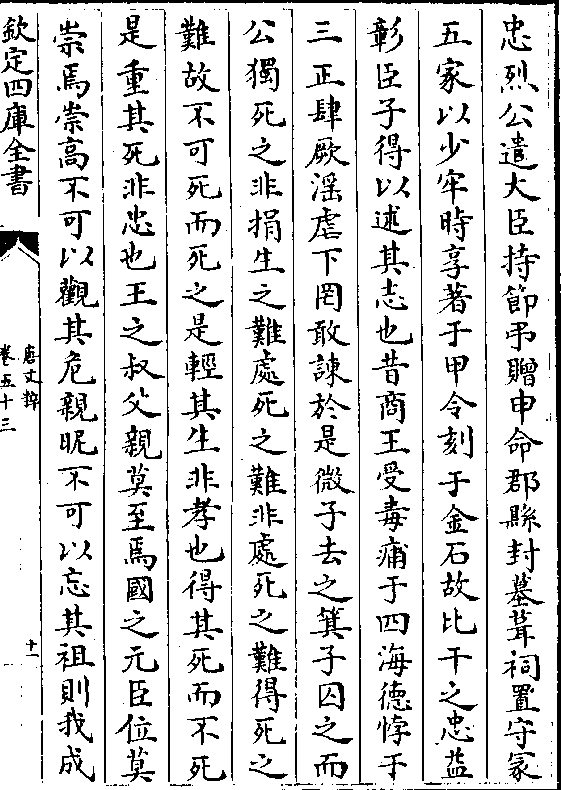 忠烈公遣大臣持節弔贈申命郡縣封墓葺祠置守冢
五家以少牢時享著于甲令刻于金石故比干之忠益
彰臣子得以述其志也昔商王受毒痡于四海德悖于
三正肆厥淫虐下罔敢諫於是微子去之箕子囚之而
公獨死之非捐生之難處死之難非處死之難得死之
難故不可死而死之是輕其生非孝也得其死而不死
是重其死非忠也王之叔父親莫至焉國之元臣位莫
崇焉崇高不可以觀其危親昵不可以忘其祖則我成
欽定四庫全書
唐文粹
卷五十三
十一